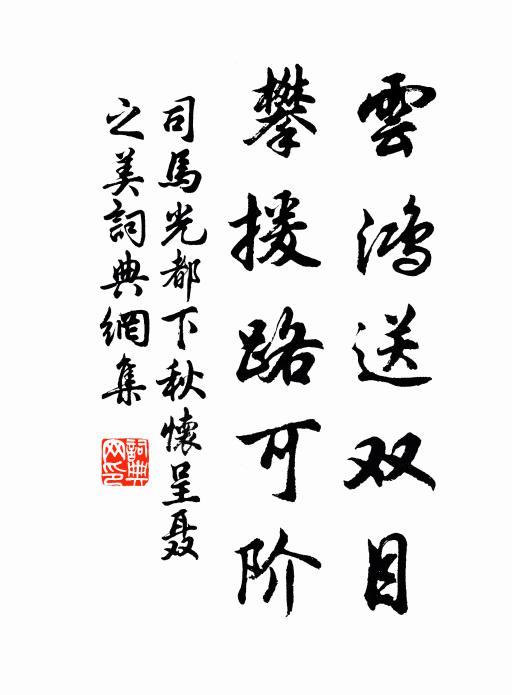 雲鸿送双目
攀援路可阶
司馬光都下秋懷呈聂
之美詞典網集
詞典网印